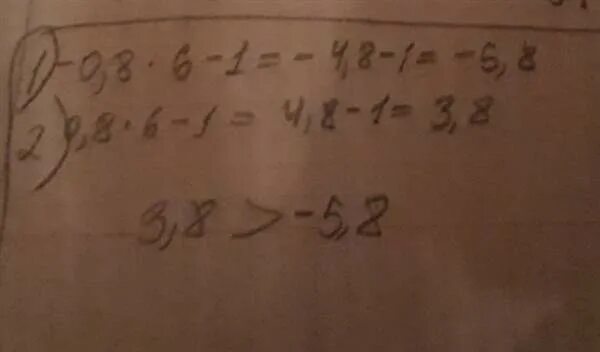 1) -0,8 · 6 - 1 = - 4,8 - 1 = - 5,8
2) 0,8 · 6 - 1 = 4,8 - 1 = 3,8
3,8 > - 5,8